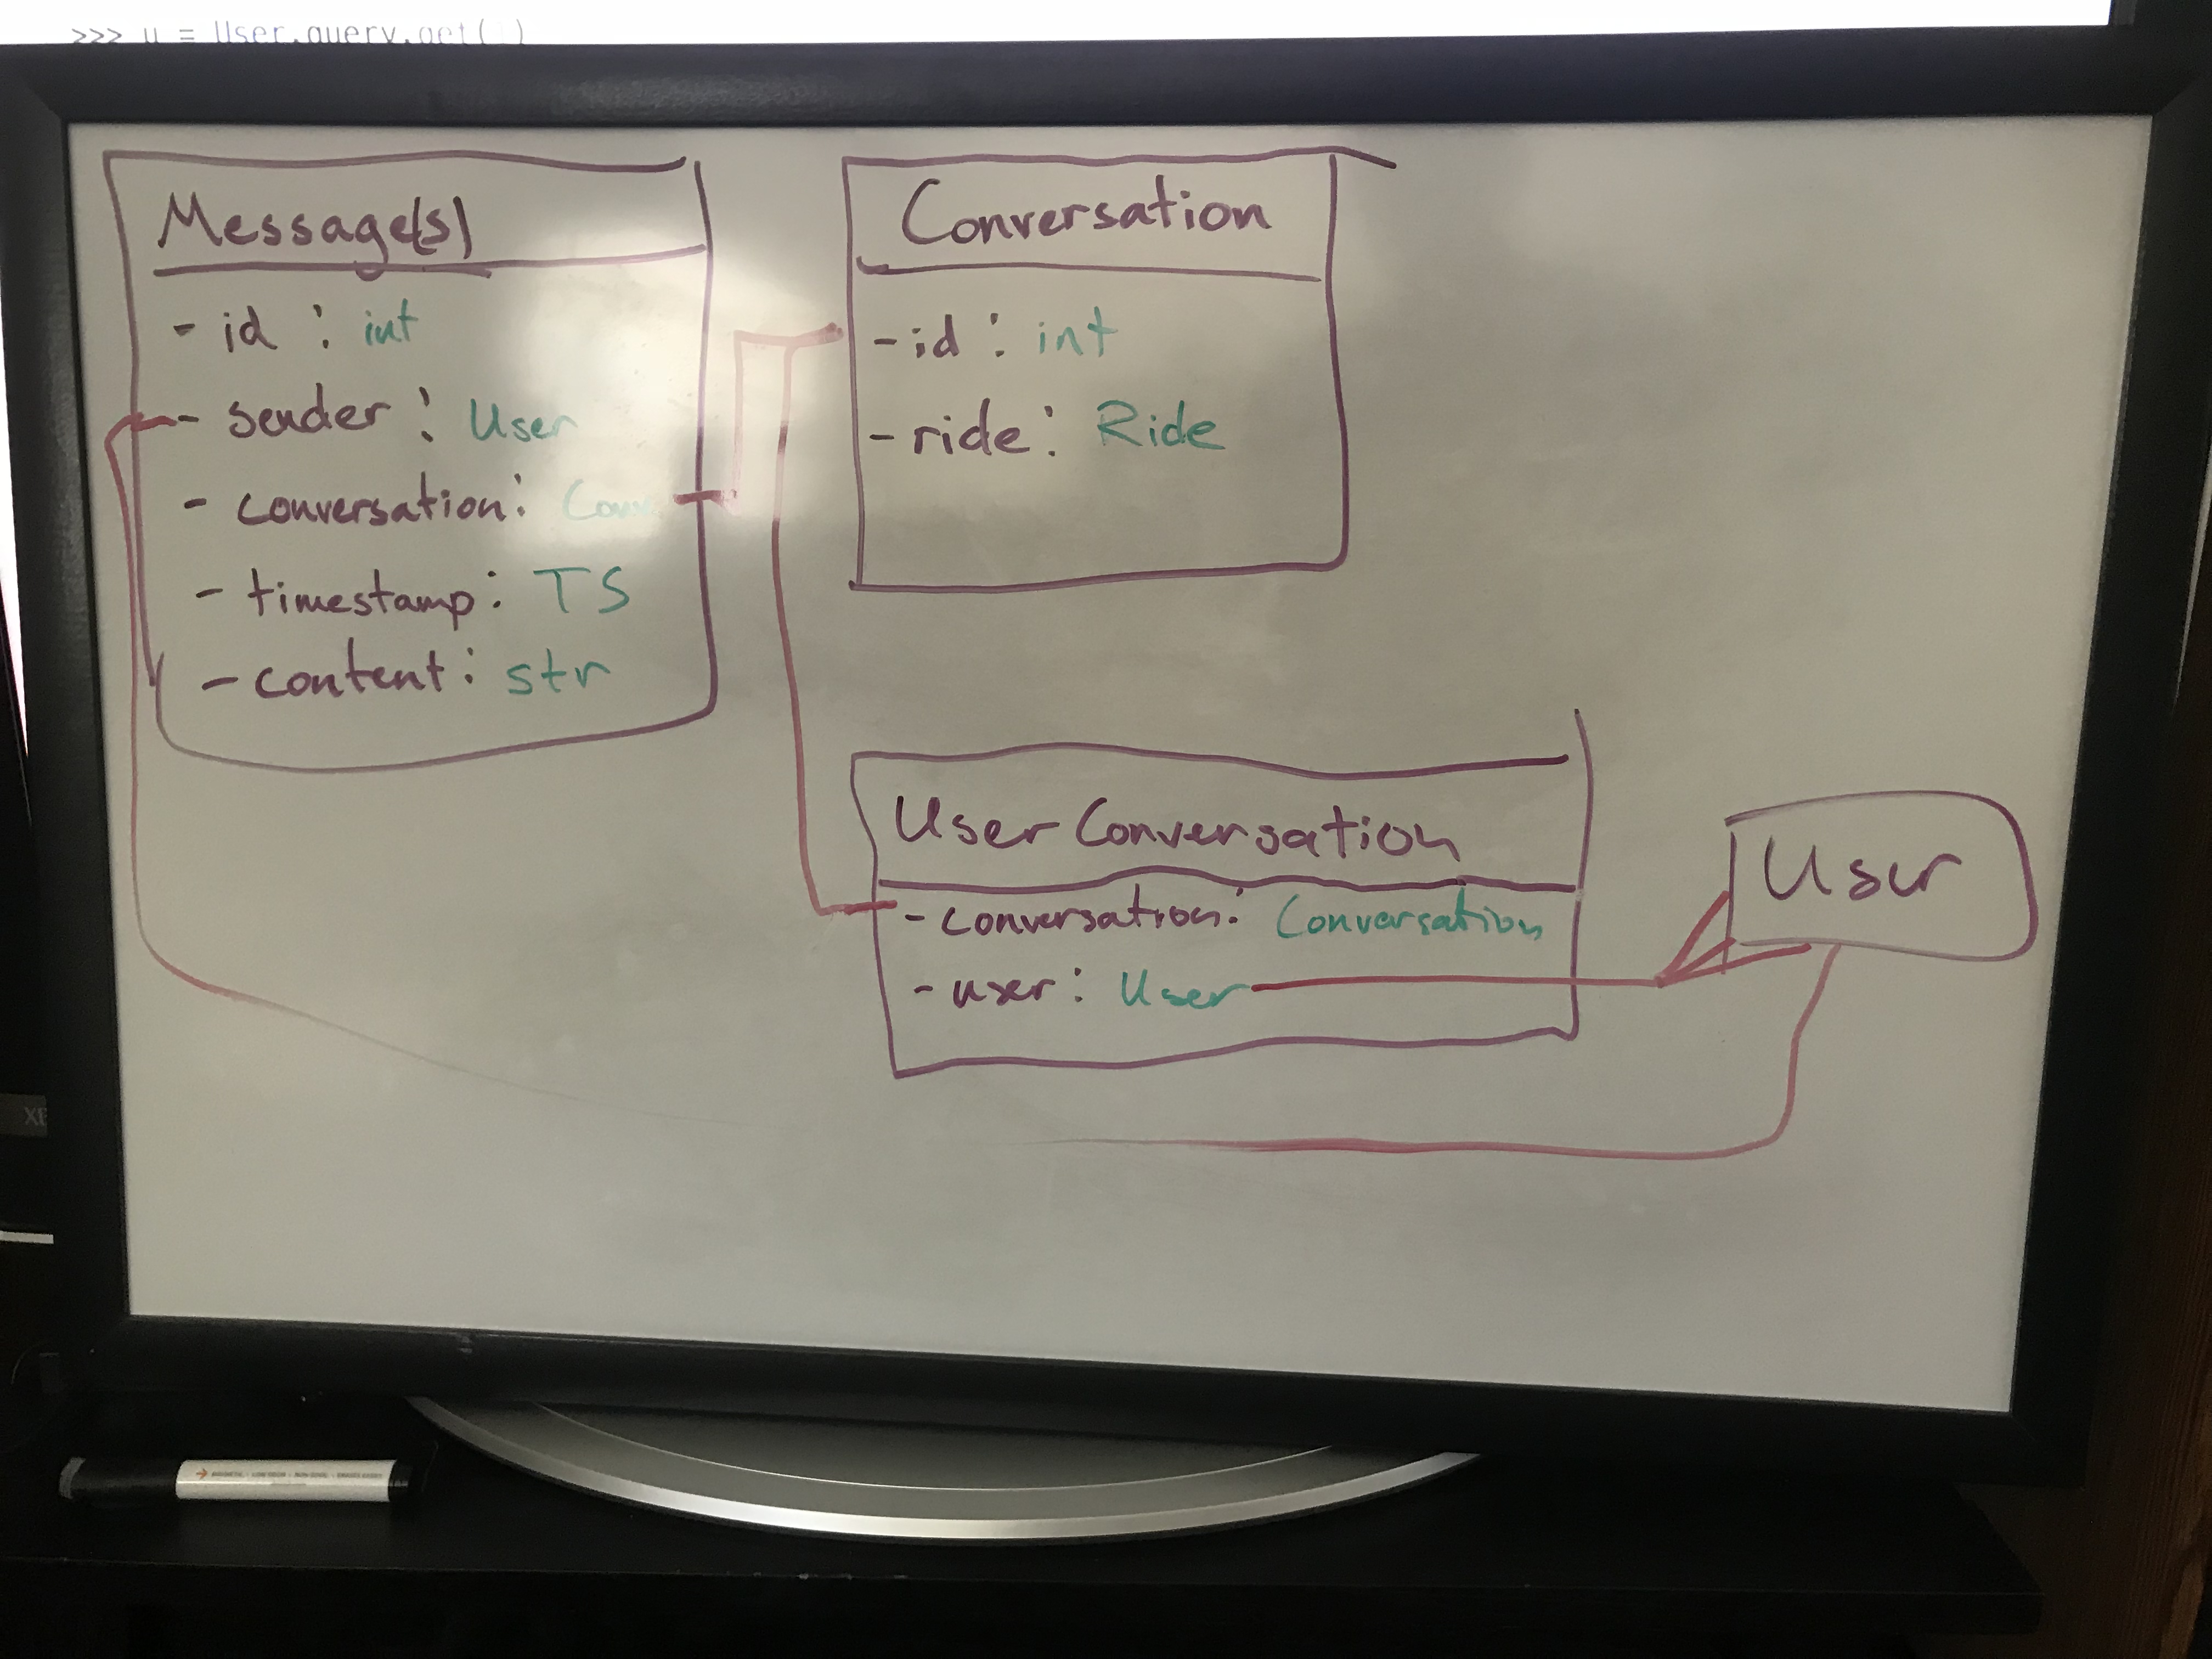 >>> u = User.query.get(1)
Message(s)
- id : int
- sender : User
- conversation:
- timestamp: TS
- content: str
Conversation
- id : int
- ride: Ride
UserConversation
- conversation: Conversation
- user: User
User